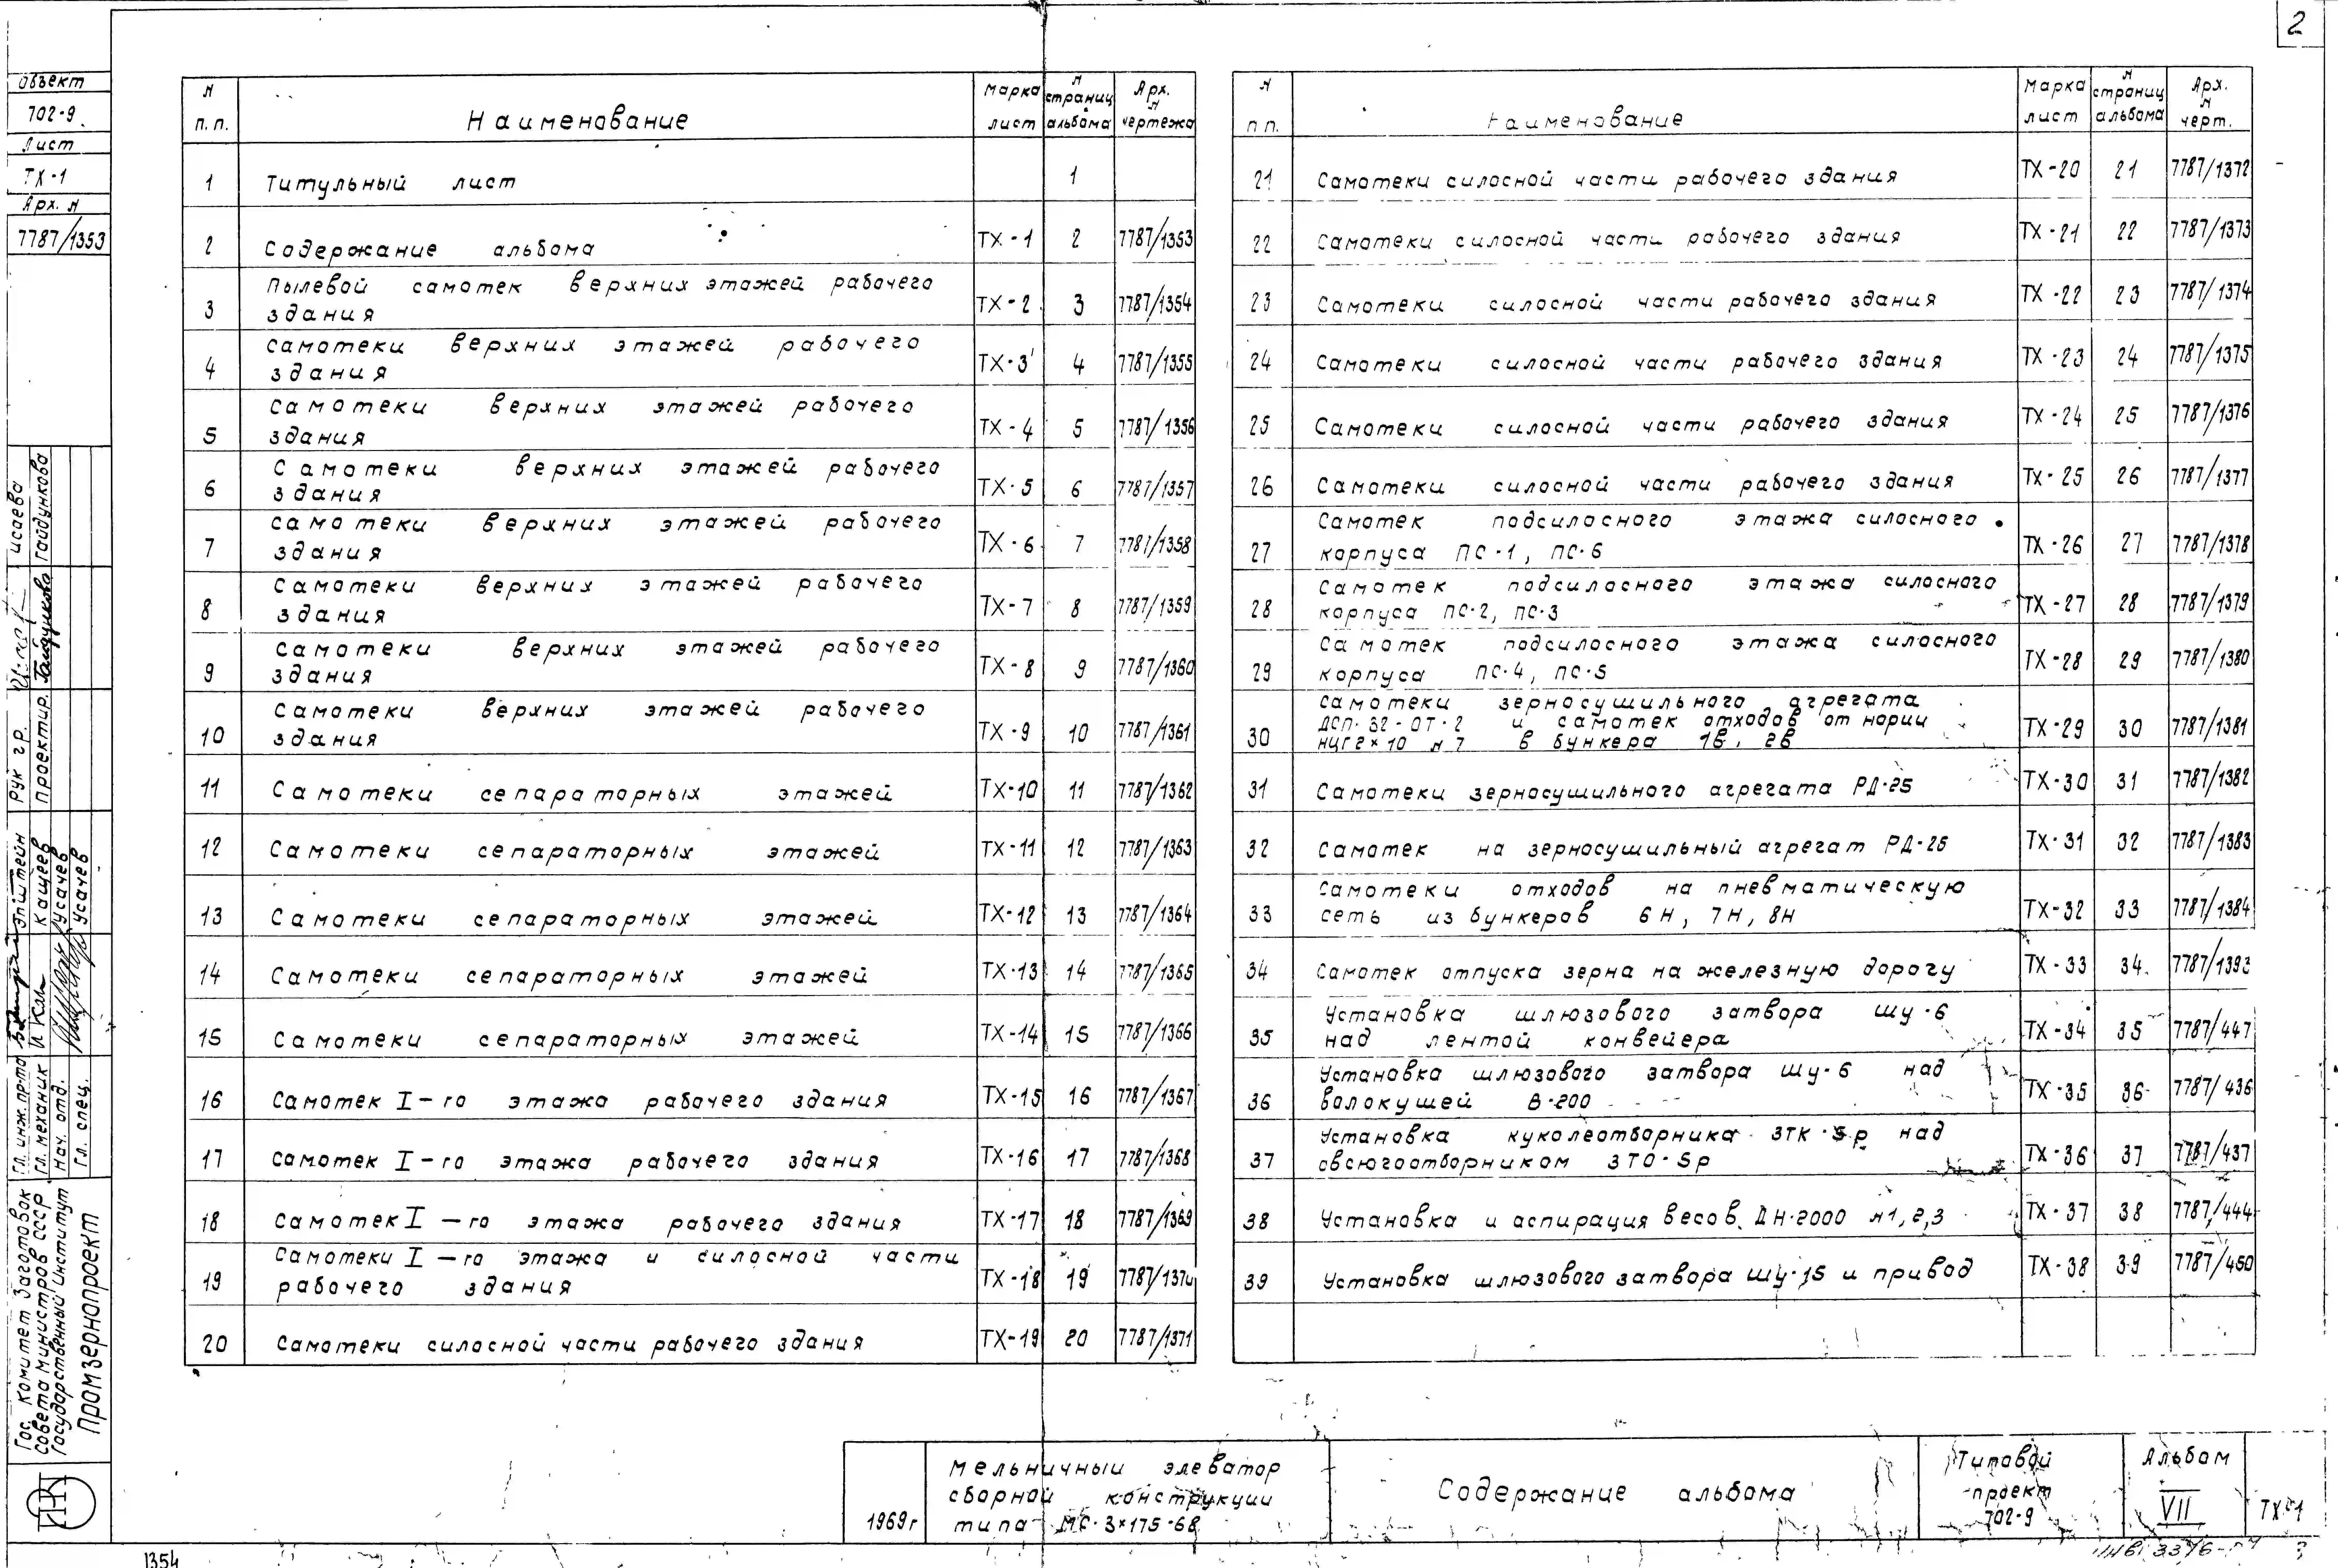 2
Объект
702-9
Лист
ТХ-1
Арх. N
7787/1353
Рук. гр. Исаева
Проектир. Гайдункова
Гл. инж. пр-та Эпштейн
Гл. механик Кащеев
Нач. отд. Усачев
Гл. спец. Усачев
Гос. комитет заготовок
Совета министров СССР
Государственный институт
Промзернопроект
N п.п. Наименование Марка лист N страниц альбома Арх. N чертежа
1 Титульный лист 1
2 Содержание альбома ТХ-1 2 7787/1353
3 Пылевой самотек верхних этажей рабочего
здания ТХ-2 3 7787/1354
4 Самотеки верхних этажей рабочего
здания ТХ-3 4 7787/1355
5 Самотеки верхних этажей рабочего
здания ТХ-4 5 7787/1356
6 Самотеки верхних этажей рабочего
здания ТХ-5 6 7787/1357
7 Самотеки верхних этажей рабочего
здания ТХ-6 7 7787/1358
8 Самотеки верхних этажей рабочего
здания ТХ-7 8 7787/1359
9 Самотеки верхних этажей рабочего
здания ТХ-8 9 7787/1360
10 Самотеки верхних этажей рабочего
здания ТХ-9 10 7787/1361
11 Самотеки сепараторных этажей ТХ-10 11 7787/1362
12 Самотеки сепараторных этажей ТХ-11 12 7787/1363
13 Самотеки сепараторных этажей ТХ-12 13 7787/1364
14 Самотеки сепараторных этажей ТХ-13 14 7787/1365
15 Самотеки сепараторных этажей ТХ-14 15 7787/1366
16 Самотек I-го этажа рабочего здания ТХ-15 16 7787/1367
17 Самотек I-го этажа рабочего здания ТХ-16 17 7787/1368
18 Самотек I-го этажа рабочего здания ТХ-17 18 7787/1369
19 Самотеки I-го этажа и силосной части
рабочего здания ТХ-18 19 7787/1370
20 Самотеки силосной части рабочего здания ТХ-19 20 7787/1371
N п.п. Наименование Марка лист N страниц альбома Арх. N черт.
21 Самотеки силосной части рабочего здания ТХ-20 21 7787/1372
22 Самотеки силосной части рабочего здания ТХ-21 22 7787/1373
23 Самотеки силосной части рабочего здания ТХ-22 23 7787/1374
24 Самотеки силосной части рабочего здания ТХ-23 24 7787/1375
25 Самотеки силосной части рабочего здания ТХ-24 25 7787/1376
26 Самотеки силосной части рабочего здания ТХ-25 26 7787/1377
27 Самотек подсилосного этажа силосного
корпуса ПС-1, ПС-6 ТХ-26 27 7787/1378
28 Самотек подсилосного этажа силосного
корпуса ПС-2, ПС-3 ТХ-27 28 7787/1379
29 Самотек подсилосного этажа силосного
корпуса ПС-4, ПС-5 ТХ-28 29 7787/1380
30 Самотеки зерносушильного агрегата
ДСП-32-ОТ-2 и самотек отходов от нории
НЦГ2×10 N 7 в бункера 1в, 2в ТХ-29 30 7787/1381
31 Самотеки зерносушильного агрегата РД-25 ТХ-30 31 7787/1382
32 Самотек на зерносушильный агрегат РД-25 ТХ-31 32 7787/1383
33 Самотеки отходов на пневматическую
сеть из бункеров 6Н, 7Н, 8Н ТХ-32 33 7787/1384
34 Самотек отпуска зерна на железную дорогу ТХ-33 34 7787/1393
35 Установка шлюзового затвора ШУ-6
над лентой конвейера ТХ-34 35 7787/447
36 Установка шлюзового затвора ШУ-6 над
волокушей В-200 ТХ-35 36 7787/436
37 Установка куколеотборника ЗТК-5р над
овсюгоотборником ЗТО-5р ТХ-36 37 7787/437
38 Установка и аспирация весов ДН-2000 N1,2,3 ТХ-37 38 7787/444
39 Установка шлюзового затвора ШУ-15 и привод ТХ-38 39 7787/450
1969г
Мельничный элеватор
сборной конструкции
типа МС-3×175-68
Содержание альбома
Типовой
проект
702-9
Альбом
VII
ТХ-1
1354